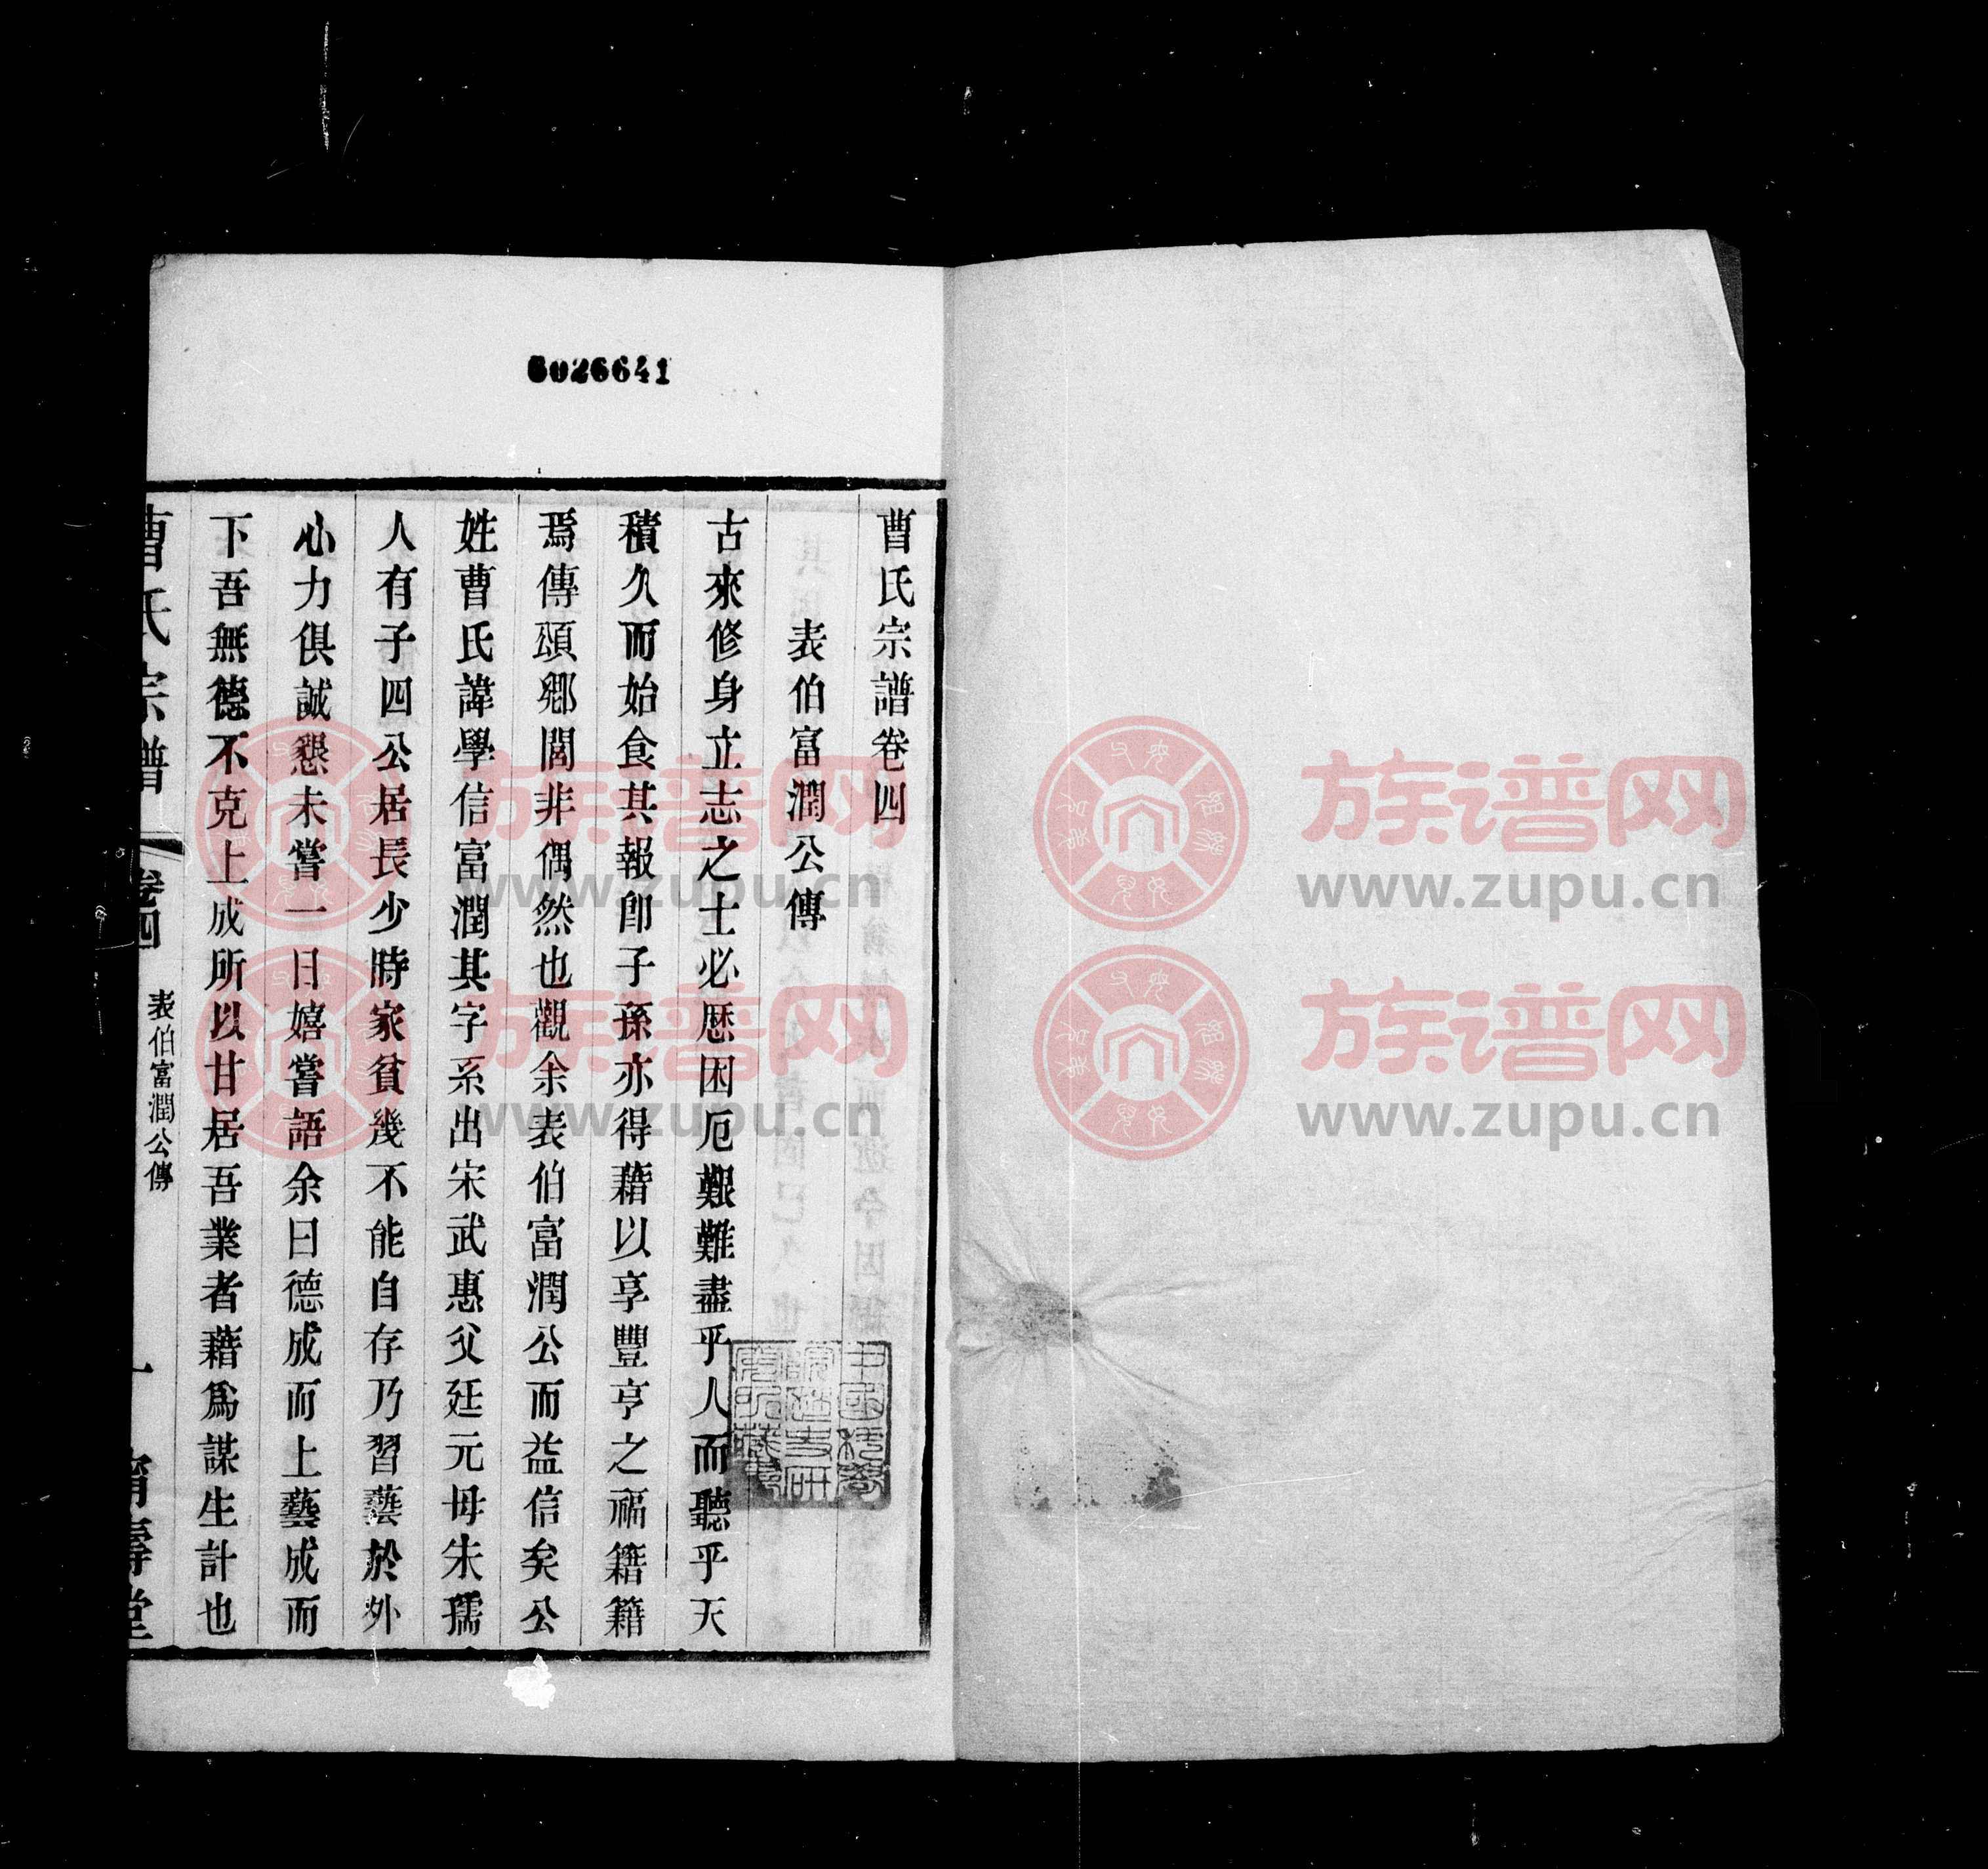 6026641
曹氏宗譜卷四
表伯富潤公傳
古來修身立志之士必歴困厄艱難盡乎人而聽乎天
積久而始食其報卽子孫亦得藉以享豐亨之福籍籍
焉傳頌鄉閭非偶然也觀余表伯富潤公而益信矣公
姓曹氏諱學信富潤其字系出宋武惠父廷元母朱孺
人有子四公居長少時家貧幾不能自存乃習藝於外
心力俱誠懇未嘗一日嬉嘗語余曰德成而上藝成而
下吾無德不克上成所以甘居吾業者藉爲謀生計也
曹氏宗譜
卷四
表伯富潤公傳
一
壽堂
中國科學
院歷史研
究所藏書
族谱网
www.zupu.cn
族谱网
www.zupu.cn
族谱网
www.zupu.cn
族谱网
www.zupu.cn